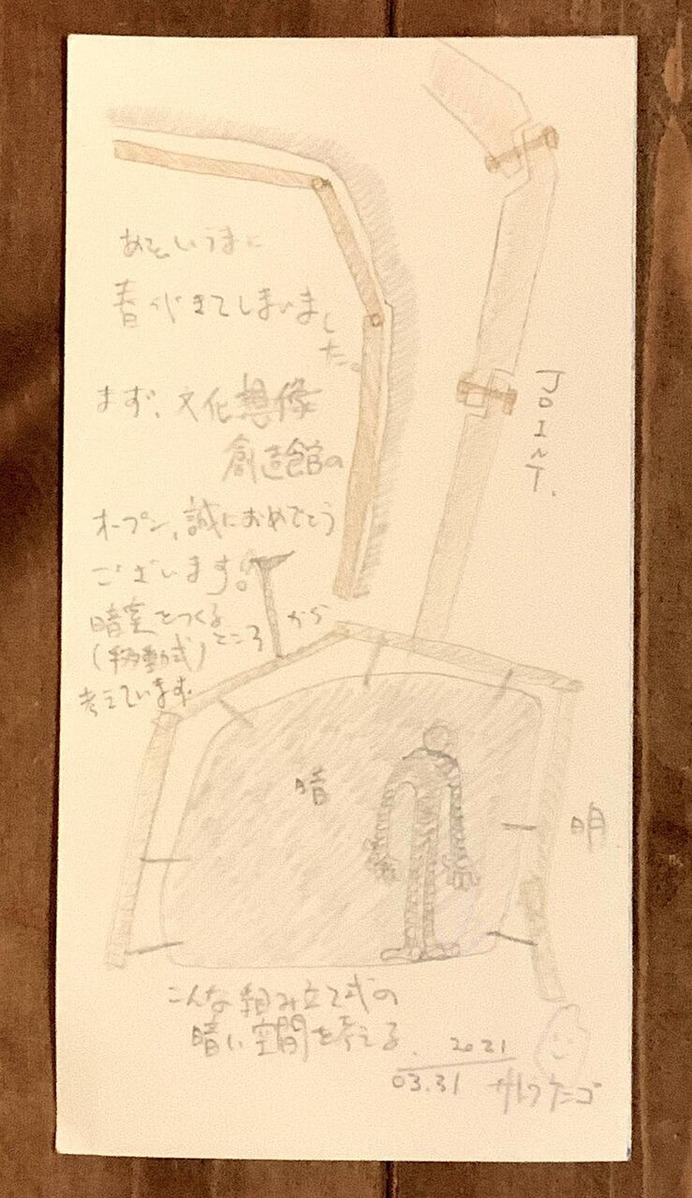 あっというまに
春がきてしまいまし
た。
まず、文化想像
創造館の
オープン、誠におめでとう
ございます。
暗室をつくる
(移動式)ところ から
考えています
JOINT.
暗
明
こんな組み立て式の
暗い空間を考える.
2021
03.31
サトウケンゴ